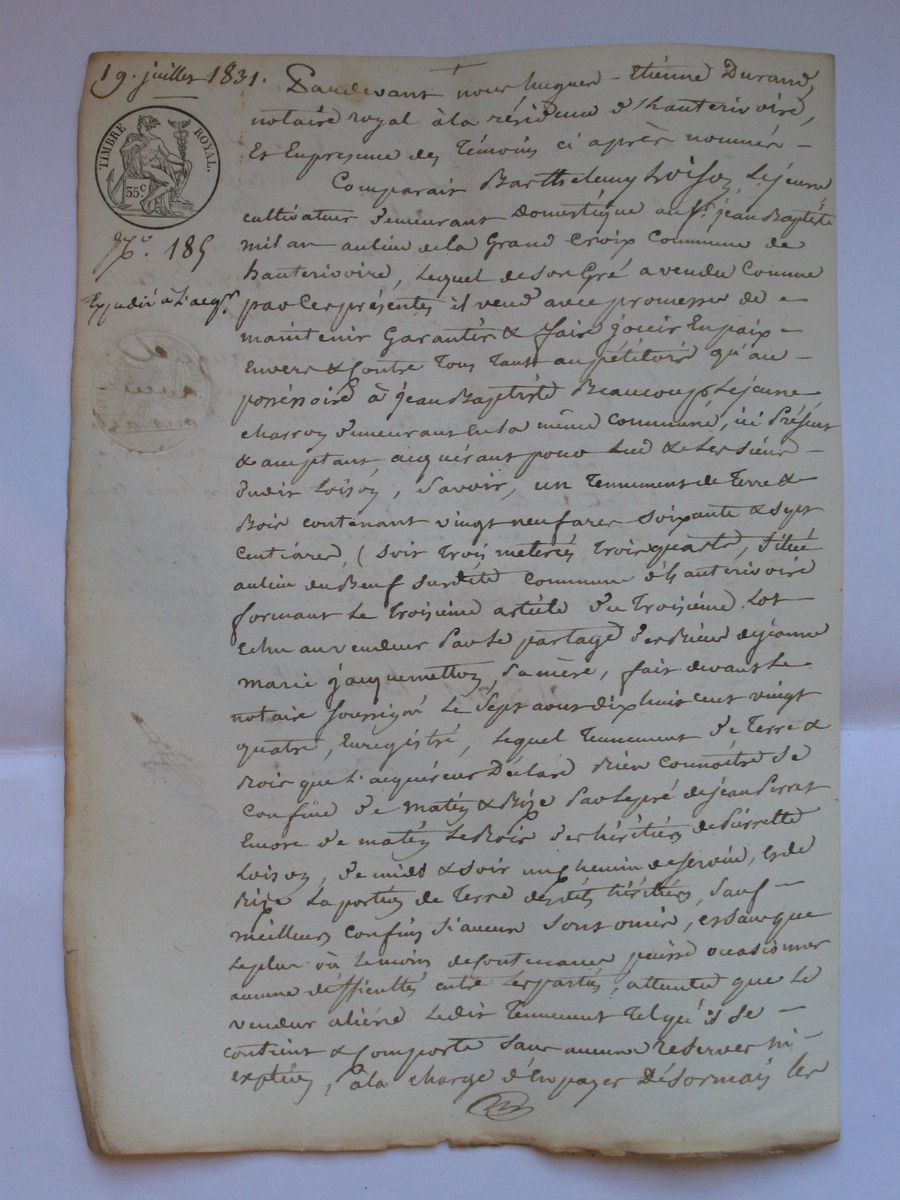 19. juillet 1831.
TIMBRE ROYAL.
35c
No. 185
Expédié à l'acqr.
Pardevant nous hugues - Etiénne Durand,
notaire royal à la résidence d'hauterivoire,
Et Enpresence des Témoins ci après nommés -
Comparait Barthelemy Loison, Lejeune
cultivateur demeurant Domestique au Sr. jean Baptiste
milan aulieu de la Grand Croix Commune de
hauterivoire, Lequel de son Gré a vendu Comme
par Ces présentes il vend avec promesse de -
maintenir Garantir & faire jouir En paix -
Envers & Contre Tous Tant au pétitoire qu'au -
possessoire à jean Baptiste Beaucoup Lejeune
charron demeurant En la même Commune, ici Présent
& acceptant, acquérant pour Lui & Les Siens -
dudit Loison, Savoir, un Tennement de Terre &
Bois contenant vingt neuf ares soixante & sept
Centiares, (soit Trois meterées Trois quarts, Situé
aulieu du Beuf Surdite Commune d'hauterivoire
formant Le Troisieme article du Troisiéme Lot
Echu au vendeur Par Le partage des Biens de jeanne
marie jacquemetton, Sa mère, fait devant Le
notaire soussigné Le Sept aout dix huit cent vingt
quatre, Enregistré, Lequel Tennement de Terre &
Bois que L'acquéreur Déclare Bien Connoître Se
Confine de matin & Bize Par Le pré de jean Pirret
Encore de matin Le Bois des héritiers de Pierrette
Loison, de midi & soir un chemin de service, Et de
Bize La portion de Terre desdits héritiers, Sauf -
meilleurs Confins si aucuns Sont omis, et sans que
Le plus où Le moins de Contenance puisse occasionner
aucune difficultés entre Les parties, attendu que Le
vendeur aliéne Ledit Tennement Tel qu'il Se -
Contient & Comporte sans aucunes reserves ni -
exeptions, à la charge d'En payer Désormais les